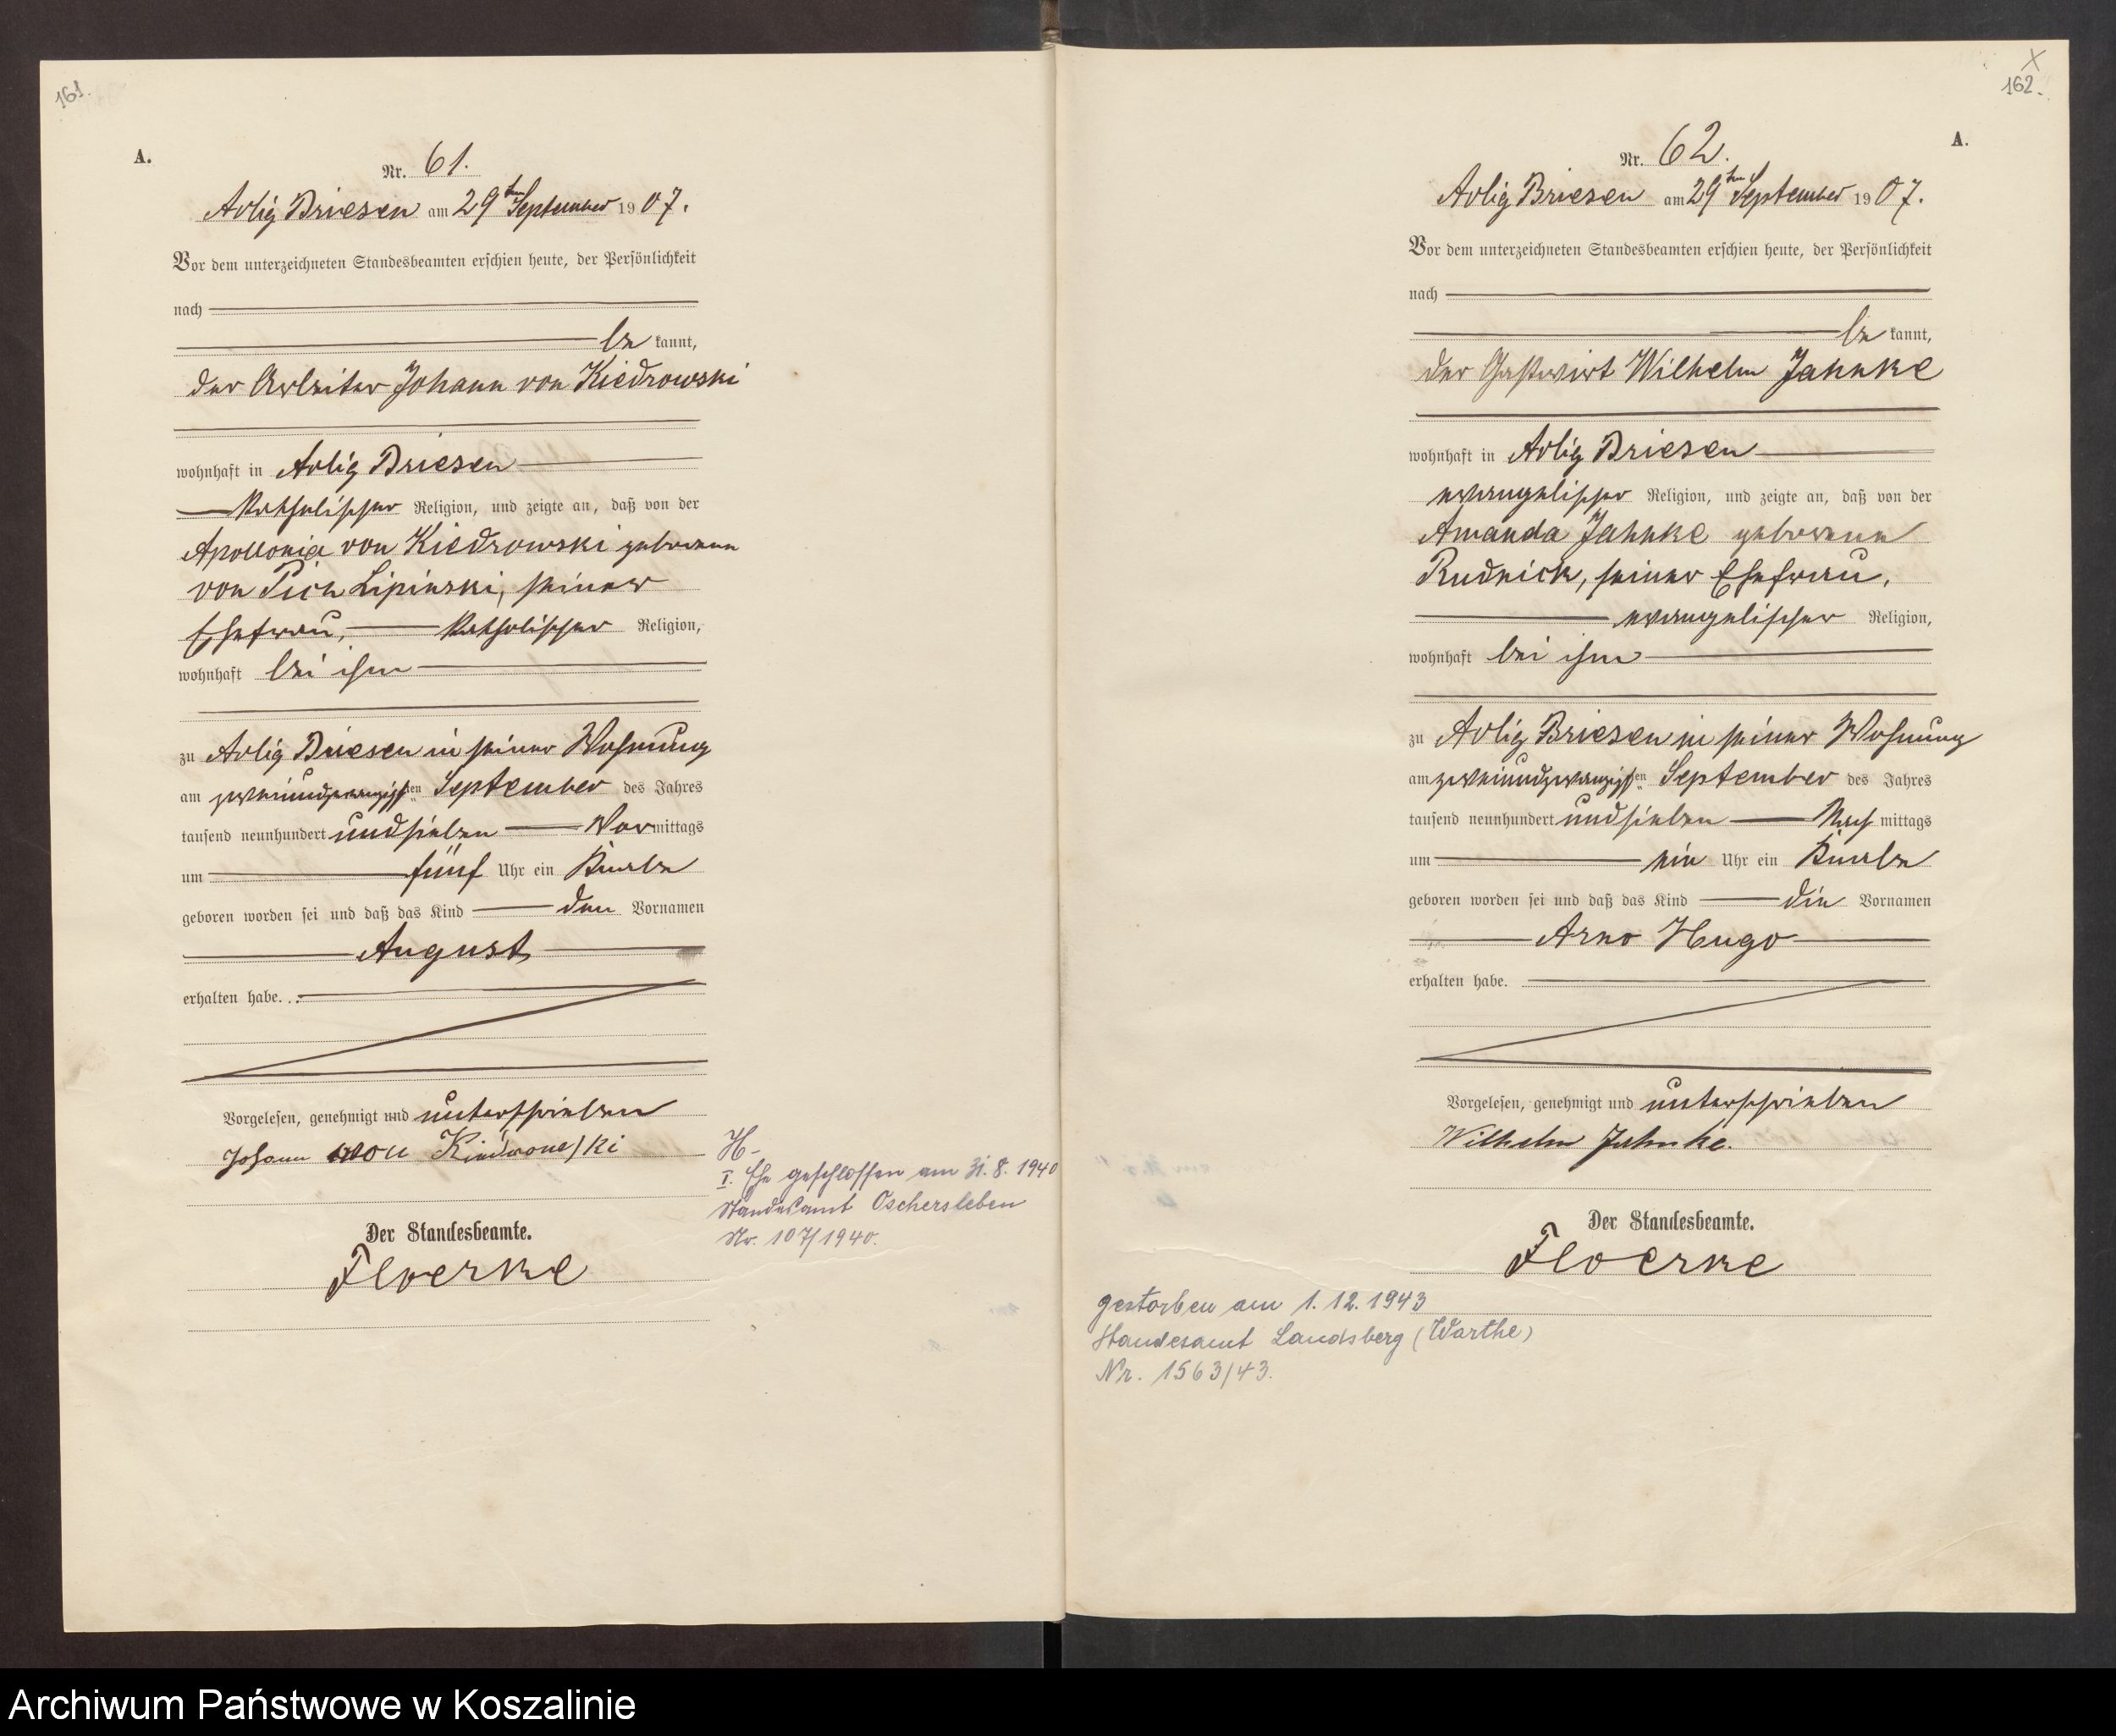 161.
A.
Nr. 61.
Adlig Briesen am 29ten September 1907.
Vor dem unterzeichneten Standesbeamten erschien heute, der Persönlichkeit
nach
be kannt,
der Arbeiter Johann von Kiedrowski
wohnhaft in Adlig Briesen
katholischer Religion, und zeigte an, daß von der
Apollonia von Kiedrowski geborenen
von Pich Lipinski, seiner
Ehefrau, katholischer Religion,
wohnhaft bei ihm
zu Adlig Briesen in seiner Wohnung
am zweiundzwanzigsten September des Jahres
tausend neunhundert undsieben Vormittags
um fünf Uhr ein Knabe
geboren worden sei und daß das Kind den Vornamen
August
erhalten habe.
Vorgelesen, genehmigt und unterschrieben
Johann von Kiedrowski
Der Standesbeamte.
Floerke
H-
I. Ehe geschlossen am 31.8.1940
Standesamt Oschersleben
Nr. 107/1940.
X
162.
A.
Nr. 62.
Adlig Briesen am 29ten September 1907.
Vor dem unterzeichneten Standesbeamten erschien heute, der Persönlichkeit
nach
be kannt,
der Gastwirt Wilhelm Jahnke
wohnhaft in Adlig Briesen
evangelischer Religion, und zeigte an, daß von der
Amanda Jahnke geborenen
Rudnick, seiner Ehefrau,
evangelischer Religion,
wohnhaft bei ihm
zu Adlig Briesen in seiner Wohnung
am zweiundzwanzigsten September des Jahres
tausend neunhundert undsieben Nachmittags
um ein Uhr ein Knabe
geboren worden sei und daß das Kind die Vornamen
Arno Hugo
erhalten habe.
Vorgelesen, genehmigt und unterschrieben
Wilhelm Jahnke.
Der Standesbeamte.
Floerke
gestorben am 1.12.1943
Standesamt Landsberg (Warthe)
Nr. 1563/43.
Archiwum Państwowe w Koszalinie